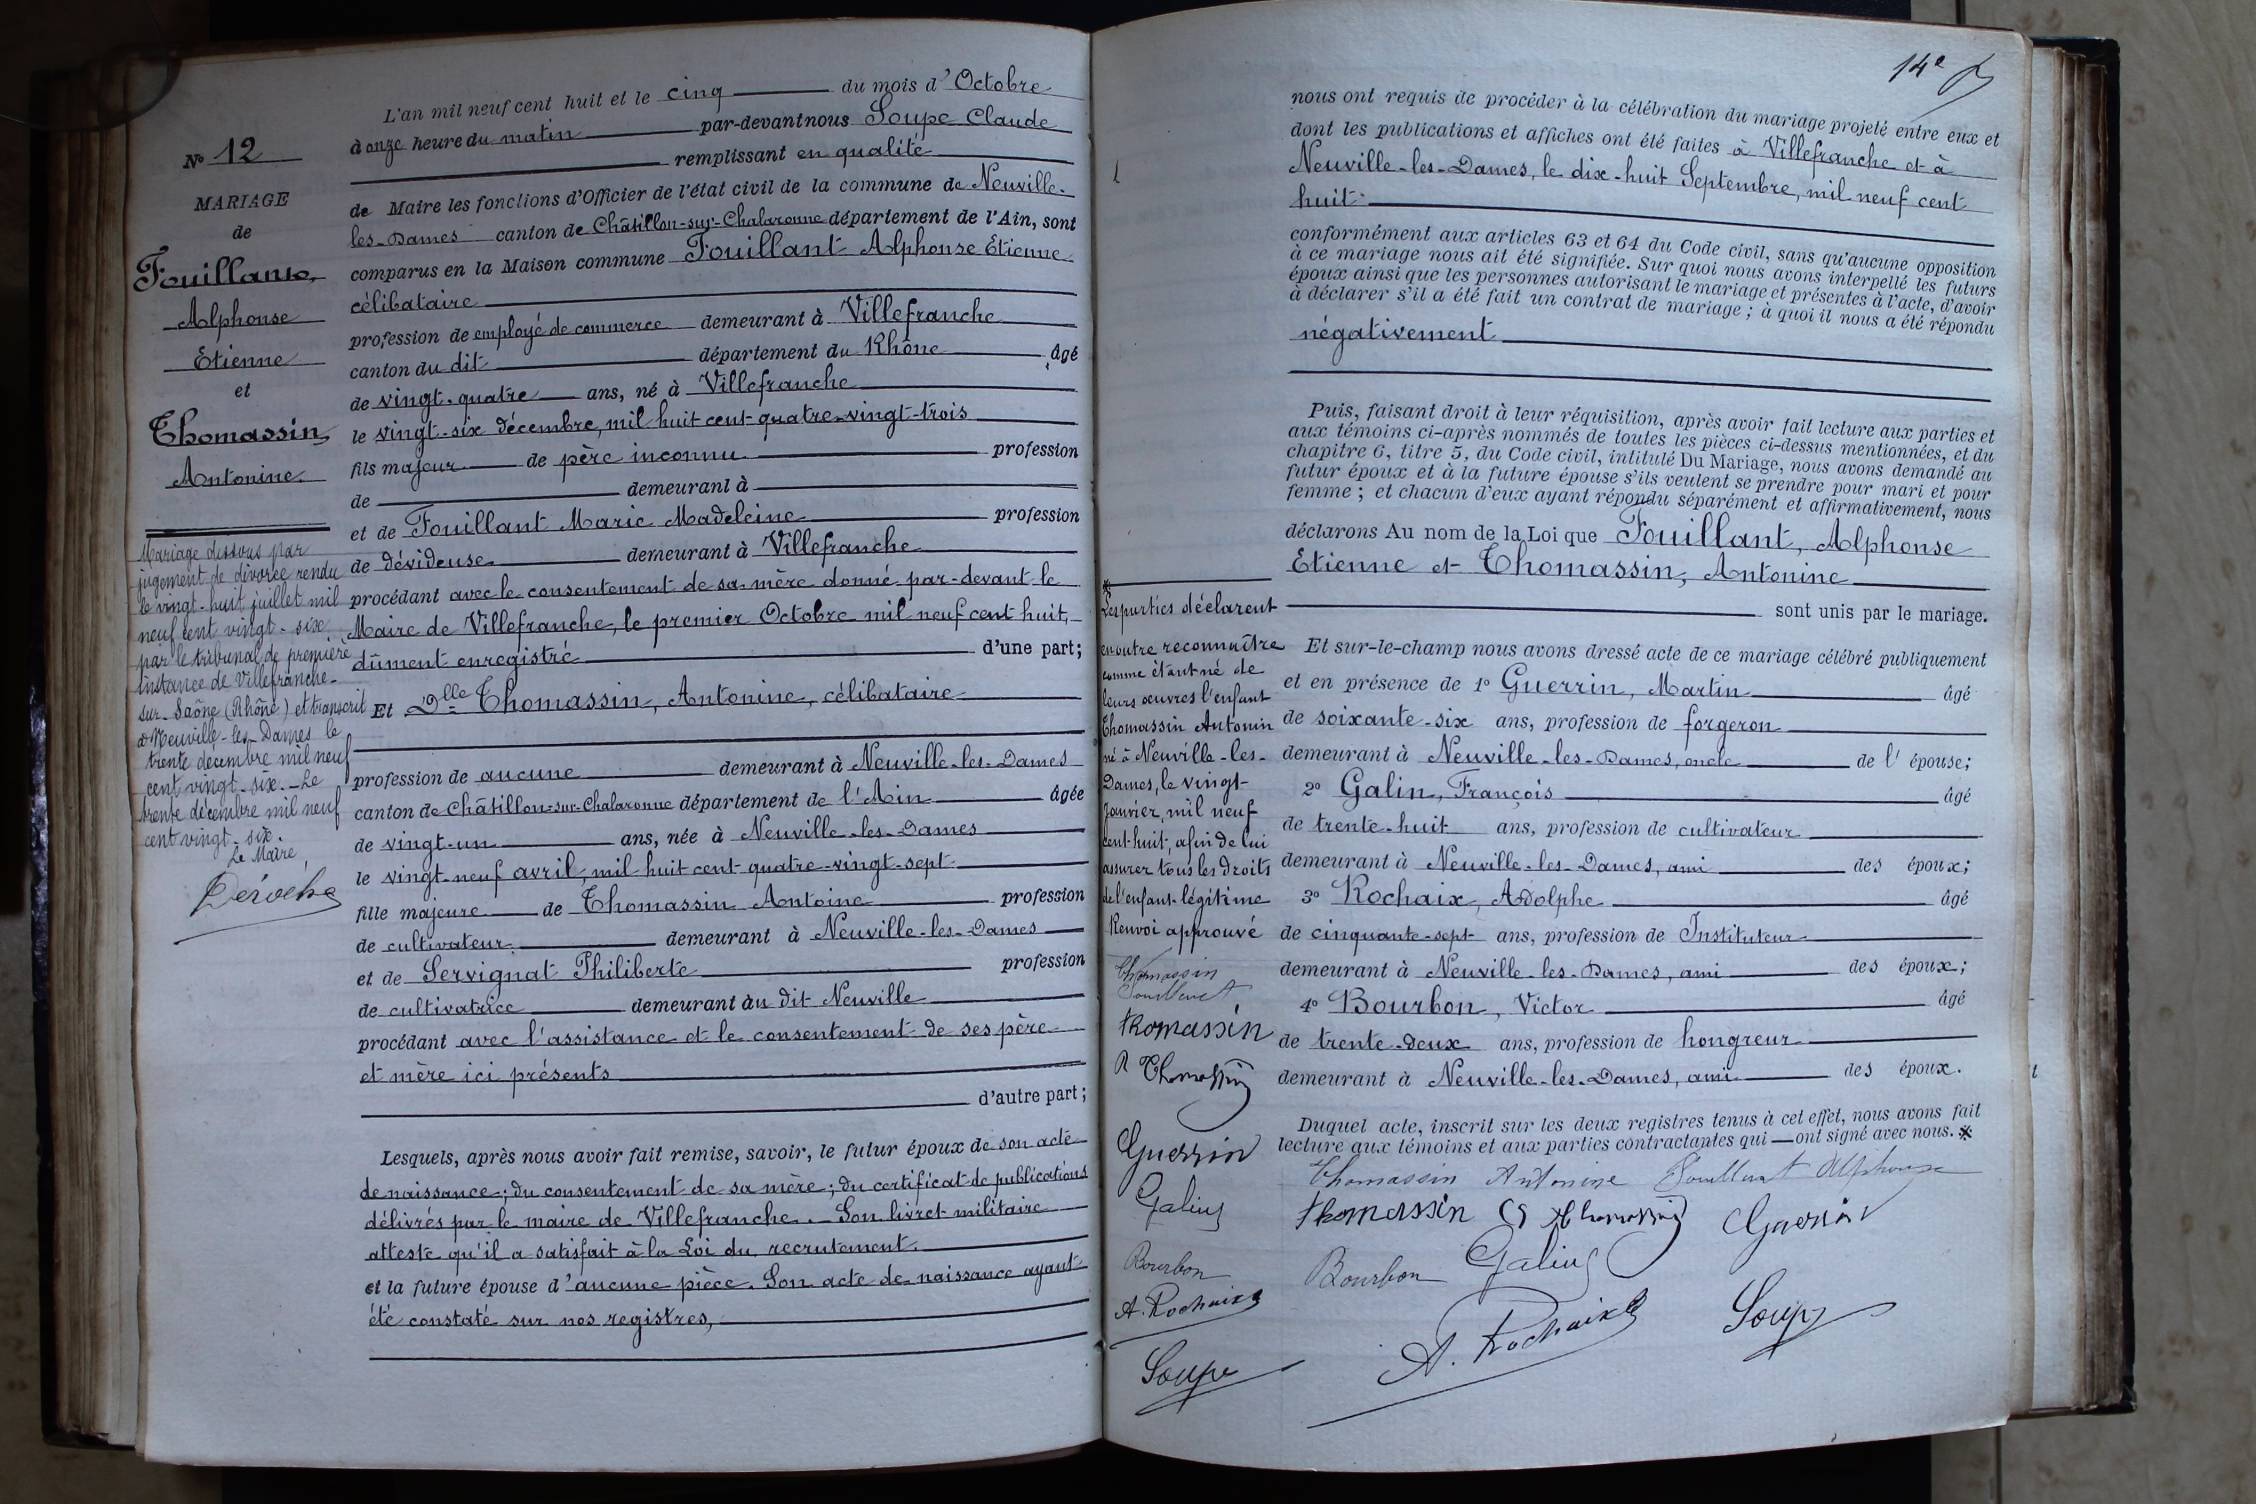 N° 12
MARIAGE
de
Fouillant,
Alphonse
Etienne
et
Thomassin,
Antonine.
Mariage dissous par
jugement de divorce rendu
le vingt-huit juillet mil
neuf cent vingt-six
par le tribunal de première
instance de Villefranche-
sur-Saône (Rhône) et transcrit
à Neuville-les-Dames le
trente décembre mil neuf
cent vingt-six. - Le
trente décembre mil neuf
cent vingt-six.
Le Maire,
L'an mil neuf cent huit et le cinq du mois d'Octobre
à onze heure du matin par-devant nous Soupe Claude
remplissant en qualité
de Maire les fonctions d'Officier de l'état civil de la commune de Neuville-
les-Dames canton de Châtillon-sur-Chalaronne département de l'Ain, sont
comparus en la Maison commune Fouillant Alphonse Etienne
célibataire
profession de employé de commerce demeurant à Villefranche
canton du dit département du Rhône âgé
de vingt-quatre ans, né à Villefranche
le vingt-six décembre, mil huit cent quatre-vingt-trois
fils majeur de père inconnu profession
de demeurant à
et de Fouillant Marie Madeleine profession
de dévideuse demeurant à Villefranche
procédant avec le consentement de sa mère donné par-devant le
Maire de Villefranche, le premier Octobre mil neuf cent huit,
dûment enregistré d'une part;
Et Dlle Thomassin, Antonine, célibataire
profession de aucune demeurant à Neuville-les-Dames
canton de Châtillon-sur-Chalaronne département de l'Ain âgée
de vingt-un ans, née à Neuville-les-Dames
le vingt-neuf avril, mil huit cent quatre-vingt-sept
fille majeure de Thomassin Antoine profession
de cultivateur demeurant à Neuville-les-Dames
et de Servignat Philiberte profession
de cultivatrice demeurant au dit Neuville
procédant avec l'assistance et le consentement de ses père
et mère ici présents
d'autre part;
Lesquels, après nous avoir fait remise, savoir, le futur époux de son acte
de naissance; du consentement de sa mère; du certificat de publications
délivrés par le maire de Villefranche. Son livret militaire
atteste qu'il a satisfait à la Loi du recrutement.
et la future épouse d'aucune pièce. Son acte de naissance ayant
été constaté sur nos registres,
14e
nous ont requis de procéder à la célébration du mariage projeté entre eux et
dont les publications et affiches ont été faites à Villefranche et à
Neuville-les-Dames, le dix-huit Septembre, mil neuf cent
huit.
conformément aux articles 63 et 64 du Code civil, sans qu'aucune opposition
à ce mariage nous ait été signifiée. Sur quoi nous avons interpellé les futurs
époux ainsi que les personnes autorisant le mariage et présentes à l'acte, d'avoir
à déclarer s'il a été fait un contrat de mariage; à quoi il nous a été répondu
négativement
Puis, faisant droit à leur réquisition, après avoir fait lecture aux parties et
aux témoins ci-après nommés de toutes les pièces ci-dessus mentionnées, et du
chapitre 6, titre 5, du Code civil, intitulé Du Mariage, nous avons demandé au
futur époux et à la future épouse s'ils veulent se prendre pour mari et pour
femme; et chacun d'eux ayant répondu séparément et affirmativement, nous
déclarons Au nom de la Loi que Fouillant, Alphonse
Etienne et Thomassin, Antonine
sont unis par le mariage.
Et sur-le-champ nous avons dressé acte de ce mariage célébré publiquement
et en présence de 1° Guerrin, Martin âgé
de soixante-six ans, profession de forgeron
demeurant à Neuville-les-Dames, oncle de l'épouse;
2° Galin, François âgé
de trente-huit ans, profession de cultivateur
demeurant à Neuville-les-Dames, ami des époux;
3° Rochaix, Adolphe âgé
de cinquante-sept ans, profession de Instituteur
demeurant à Neuville-les-Dames, ami des époux;
4° Bourbon, Victor âgé
de trente-deux ans, profession de hongreur
demeurant à Neuville-les-Dames, ami des époux.
Duquel acte, inscrit sur les deux registres tenus à cet effet, nous avons fait
lecture aux témoins et aux parties contractantes qui ont signé avec nous. *
Thomassin Antonine Fouillant Alphonse
Thomassin Thomassin Guerrin
Bourbon Galin
A. Rochaix Soupe
*
Les parties déclarent
en outre reconnaître
comme étant né de
leurs œuvres l'enfant
Thomassin Antonin
né à Neuville-les-
Dames, le vingt-
Janvier, mil neuf
cent-huit, afin de lui
assurer tous les droits
de l'enfant légitime
Renvoi approuvé
Thomassin
Fouillant
Thomassin
Thomassin
Guerrin
Galin
Bourbon
A. Rochaix
Soupe